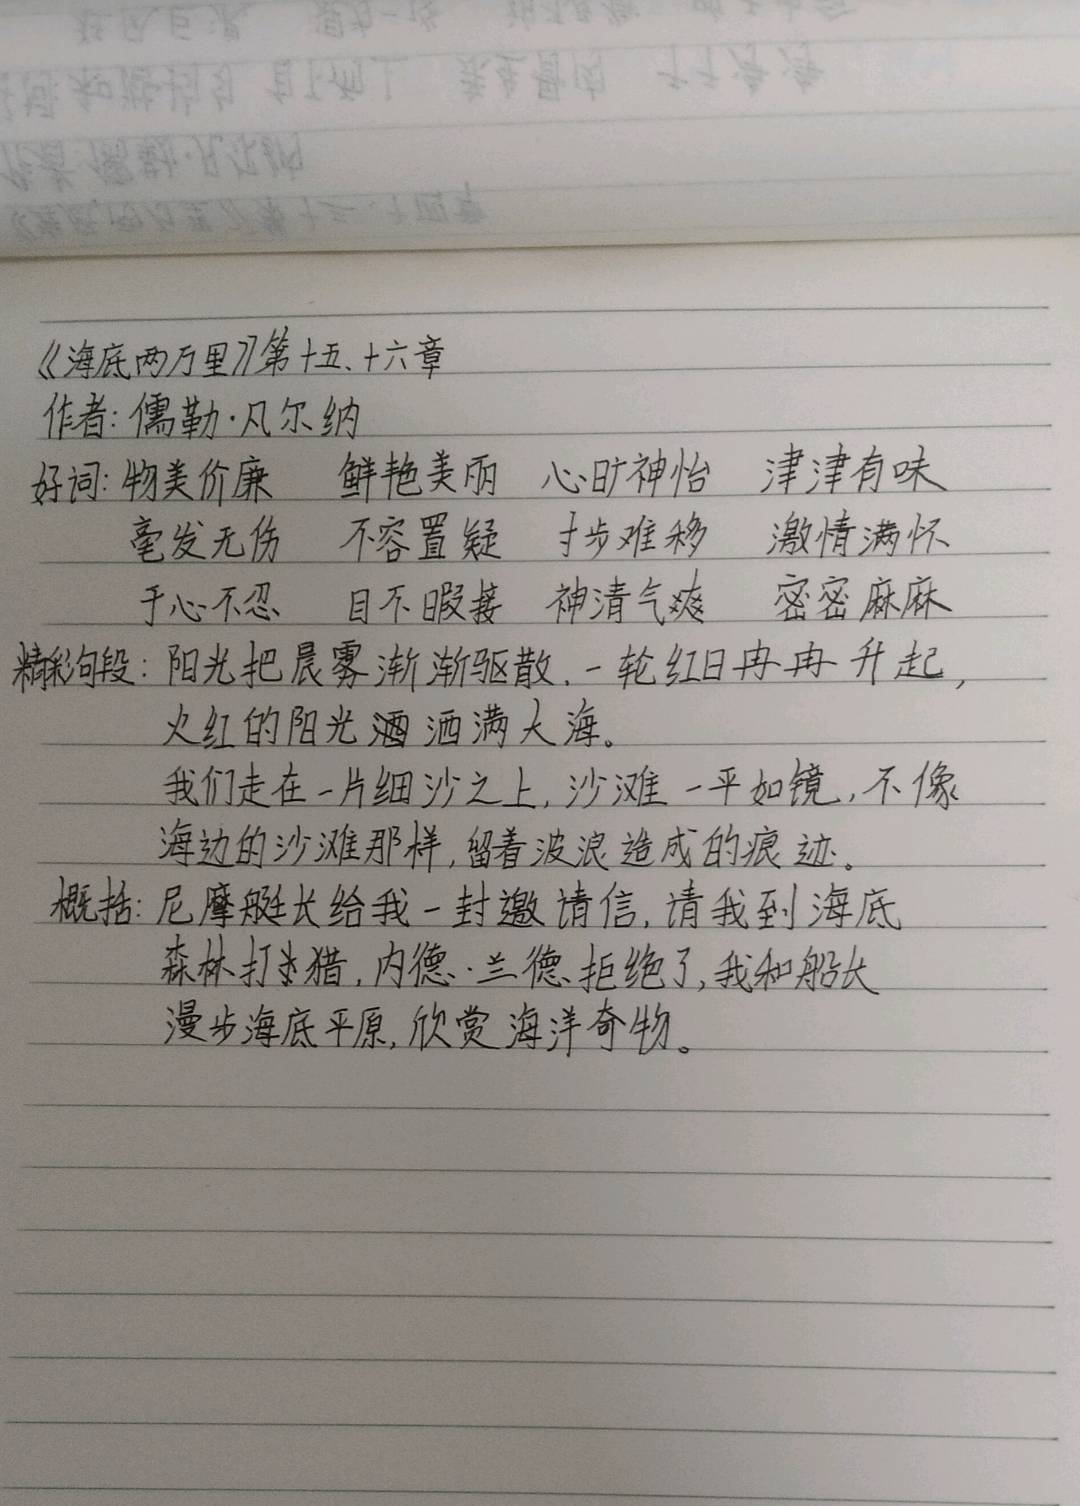 《海底两万里》第十五、十六章
作者:儒勒·凡尔纳
好词:物美价廉 鲜艳美丽 心旷神怡 津津有味
毫发无伤 不容置疑 寸步难移 激情满怀
于心不忍 目不暇接 神清气爽 密密麻麻
精彩句段:阳光把晨雾渐渐驱散,一轮红日冉冉升起,
火红的阳光洒满大海。
我们走在一片细沙之上,沙滩一平如镜,不像
海边的沙滩那样,留着波浪造成的痕迹。
概括:尼摩艇长给我一封邀请信,请我到海底
森林打猎,内德·兰德拒绝了,我和船长
漫步海底平原,欣赏海洋奇物。